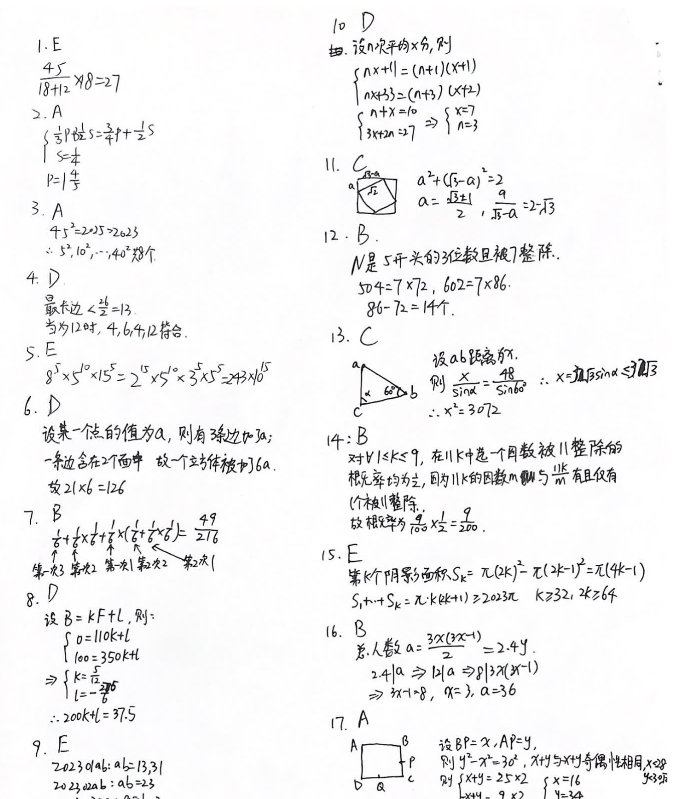 1. E
45/(18+12) ×18=27
2. A
{ 1/3P+1/2S=3/4P+1/2S
S=1/4
P=1 4/5
3. A
45²=2025>2023
∴ 5²,10²,…,40²共8个
4. D.
最长边<26/2=13.
当为12时, 4,6,4,12符合.
5. E
8⁵×5¹⁰×15⁵=2¹⁵×5¹⁰×3⁵×5⁵=243×10¹⁵
6. D
设某一个点的值为a, 则有3条边加了a;
一条边含在2个面中 故一个立方体被加了6a.
故21×6=126
7. B
1/6+1/6×1/6+1/6×(1/6+1/6×1/6)=49/216
第一次3 第一次2 第一次1 第2次2 第2次1
8. D
设B=kF+l, 则:
{ 0=110k+l
100=350k+l
⇒ { k=5/12
l=-275/6
∴200k+l=37.5
9. E
202301ab: ab=13,31
202302ab: ab=23
10 D
设n次平均x分, 则
{ nx+11=(n+1)(x+1)
nx+33=(n+3)(x+2)
{ n+x=10
3x+2n=27 ⇒ { x=7
n=3
11. C
√3-a
a
√2
a²+(√3-a)²=2
a=(√3±1)/2, a/(√3-a)=2-√3
12. B.
N是5开头的3位数且被7整除.
504=7×72, 602=7×86.
86-72=14个.
13. C
a
α 60° b
c
设ab距离为x.
则 x/sinα=48/sin60° ∴ x=32√3sinα≤32√3
∴x²=3072
14: B
对∀1≤k≤9, 在11k中选一个因数被11整除的
概率均为1/2, 因为11k的因数m与11k/m有且仅有
1个被11整除.
故概率为9/100×1/2=9/200.
15. E
第k个阴影面积Sk=π(2k)²-π(2k-1)²=π(4k-1)
S₁+…+Sk=π·k(2k+1)≥2023π k≥32, 2k≥64
16. B
总人数a=3x(3x-1)/2=2.4y.
2.4|a ⇒12|a ⇒8|3x(3x-1)
⇒ 3x-1=8, x=3, a=36
17. A
A B
P
D Q C
设BP=x, AP=y,
则y²-x²=30², x+y与-x+y奇偶性相同,
则 { x+y=25×2
-x+y=9×2
{ x=16
y=34